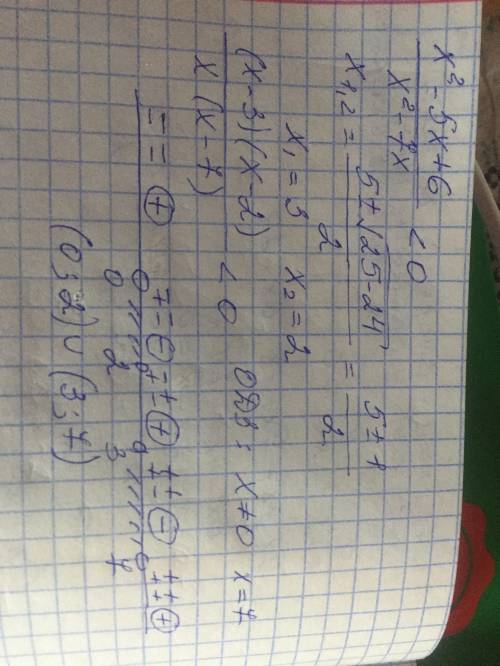 x² - 5x + 6 / x² - 7x < 0
x₁,₂ = 5 ± √25 - 24 / 2 = 5 ± 1 / 2
x₁ = 3 x₂ = 2
(x - 3)(x - 2) / x (x - 7) < 0 ОДЗ: x ≠ 0 x = 7
+ - + - +
0 2 3 7
(0; 2) ∪ (3; 7)